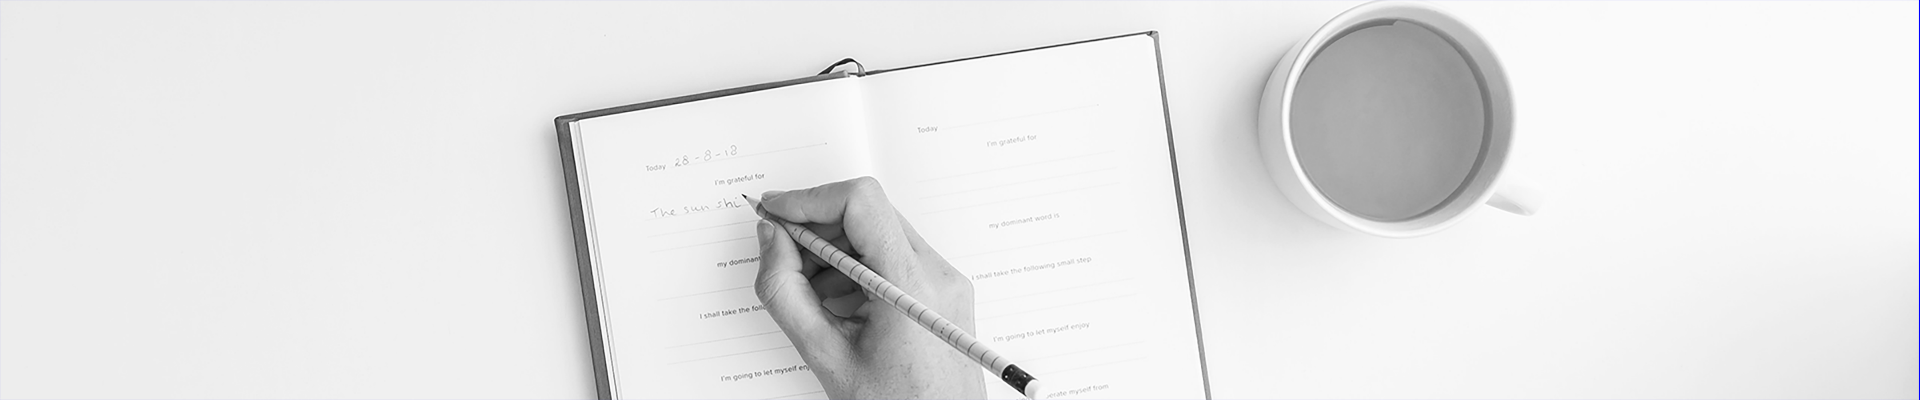 Today 28-8-18
I'm grateful for
The sun shi
my dominant
I shall take the foll
I'm going to let myself enj
Today
I'm grateful for
my dominant word is
I shall take the following small step
I'm going to let myself enjoy
erate myself from